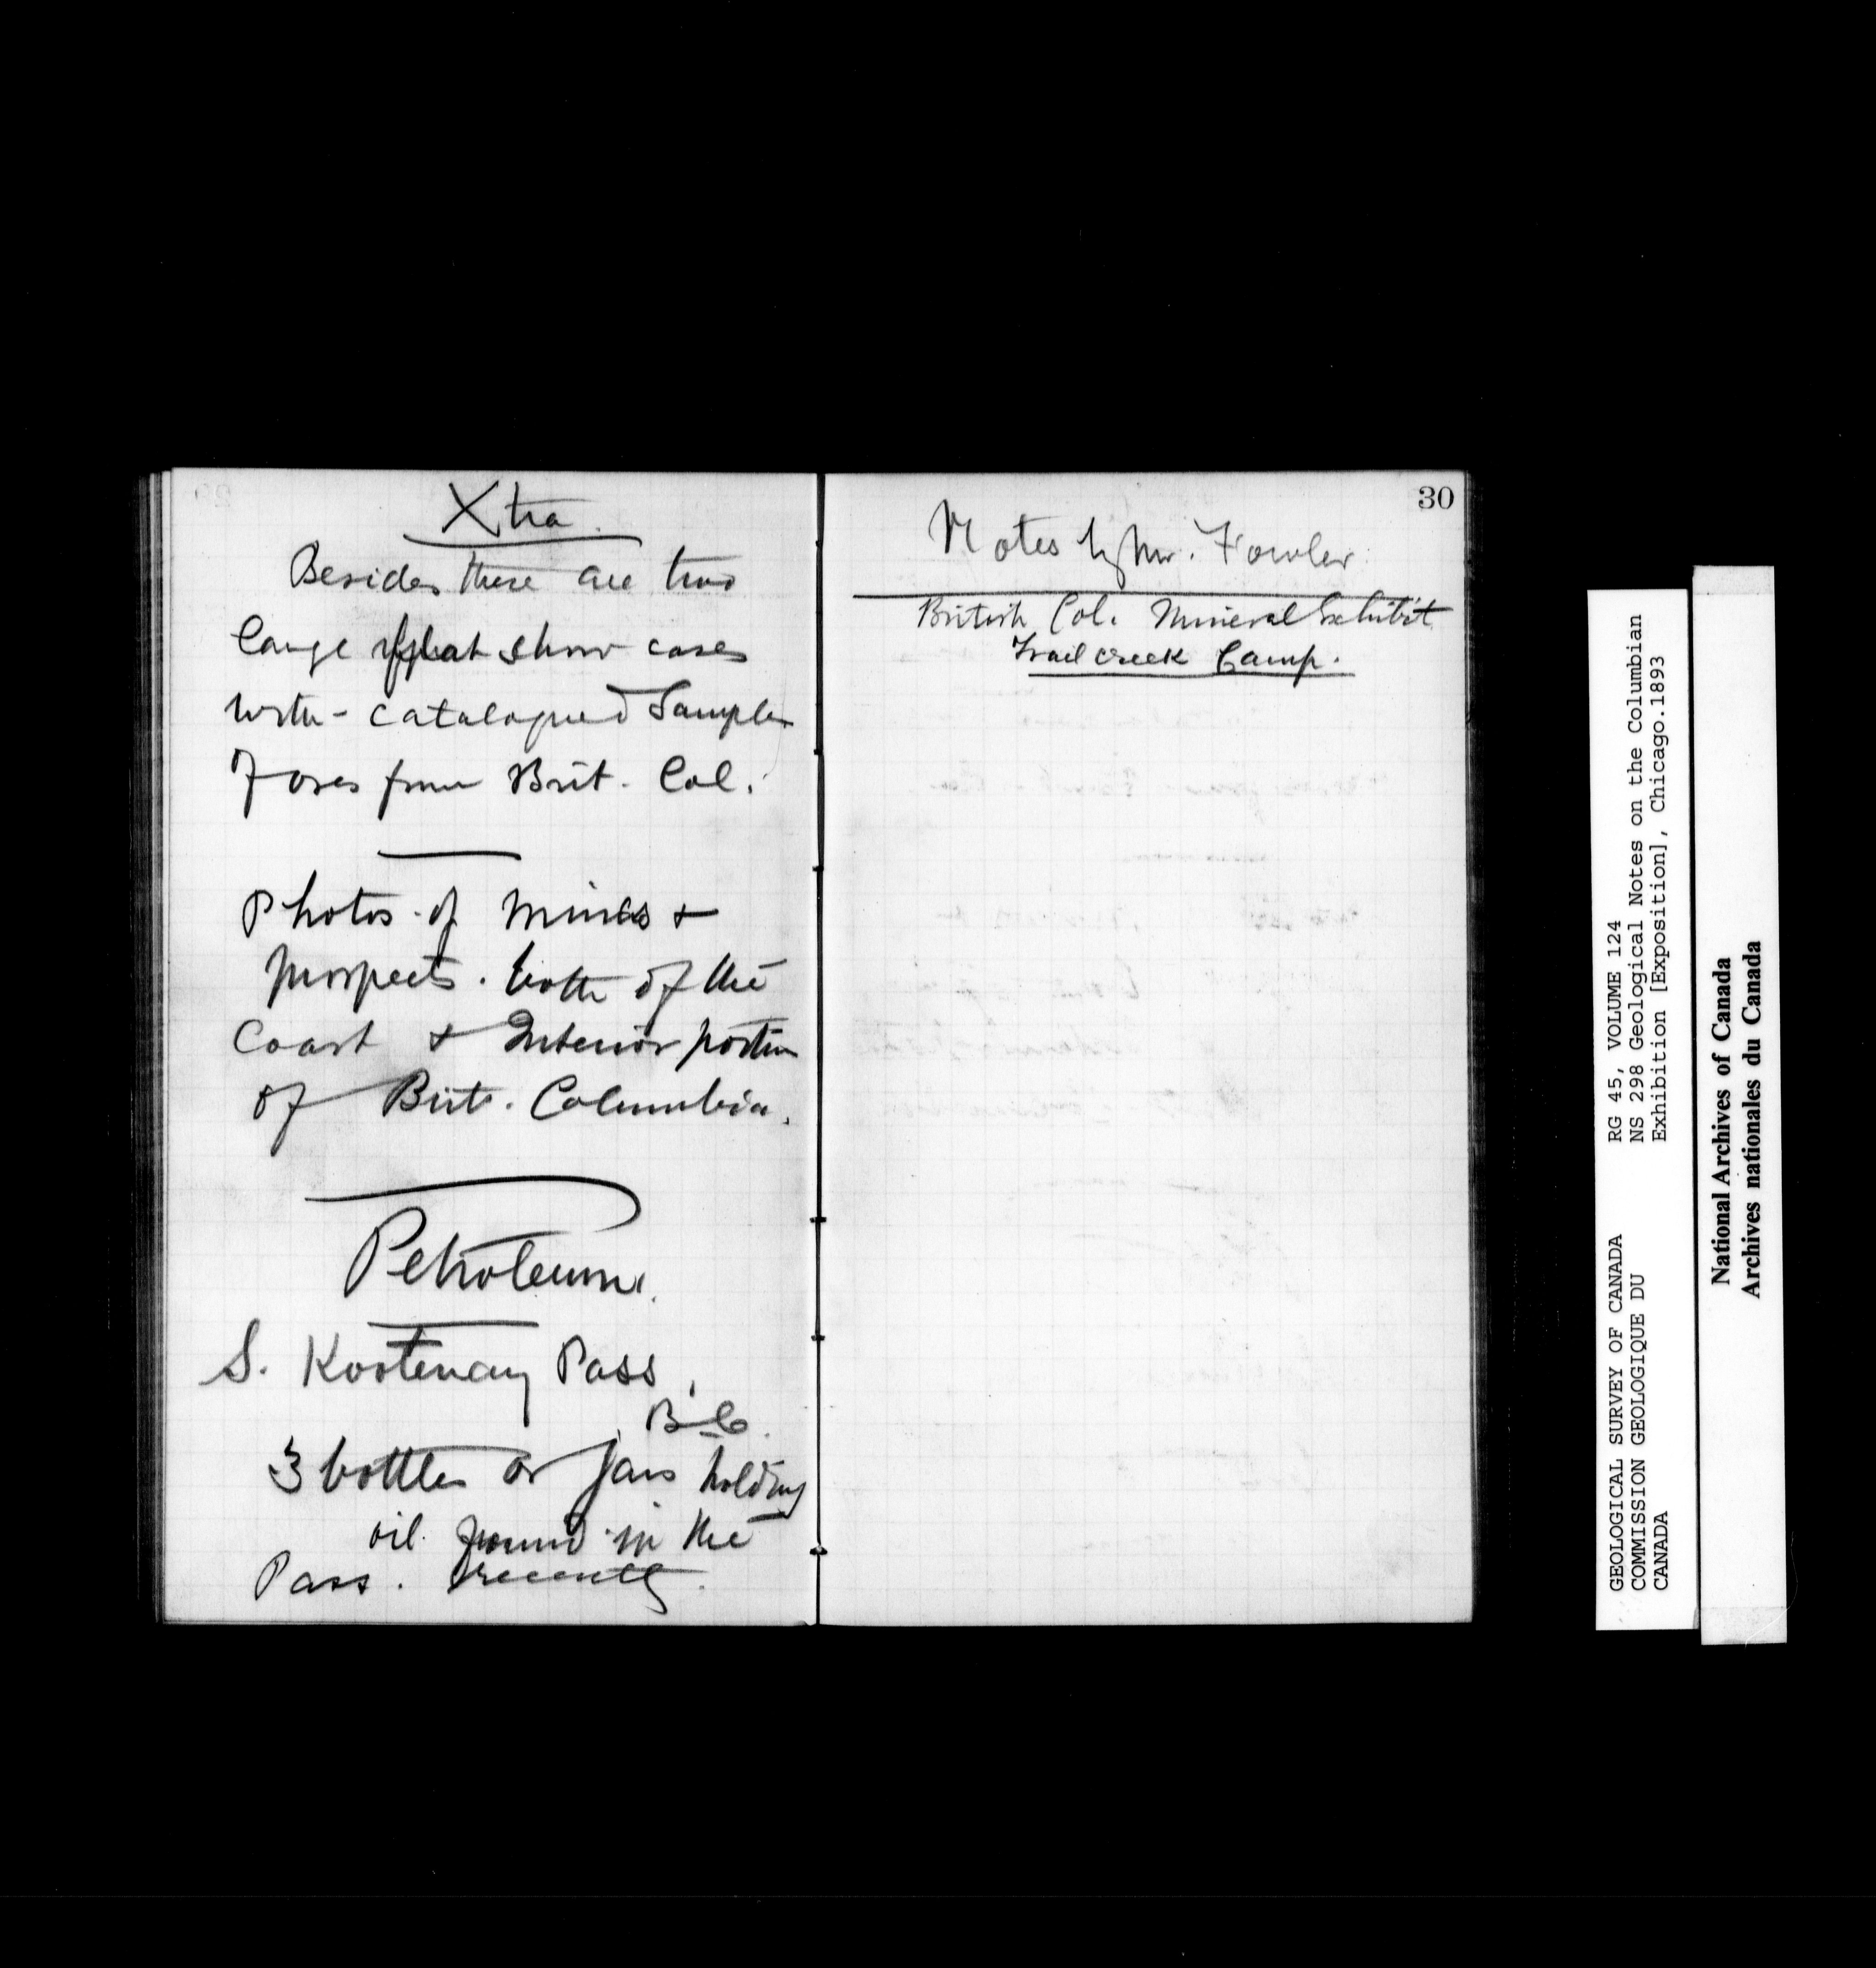 Xtra.
Besides these are two
large flat show cases
with - catalogued Samples
of ores from Brit. Col.
Photos of Mines &
prospects. both of the
Coast & Interior portion
of Brit. Columbia.
Petroleum.
S. Kootenay Pass,
B C.
3 bottles or Jars holding
oil. found in the
Pass. recently.
30
Notes by Mr. Fowler.
British Col. Mineral Exhibit
Trail Creek Camp.
GEOLOGICAL SURVEY OF CANADA
COMMISSION GEOLOGIQUE DU
CANADA
RG 45, VOLUME 124
NS 298 Geological Notes on the Columbian
Exhibition [Exposition], Chicago.1893
National Archives of Canada
Archives nationales du Canada